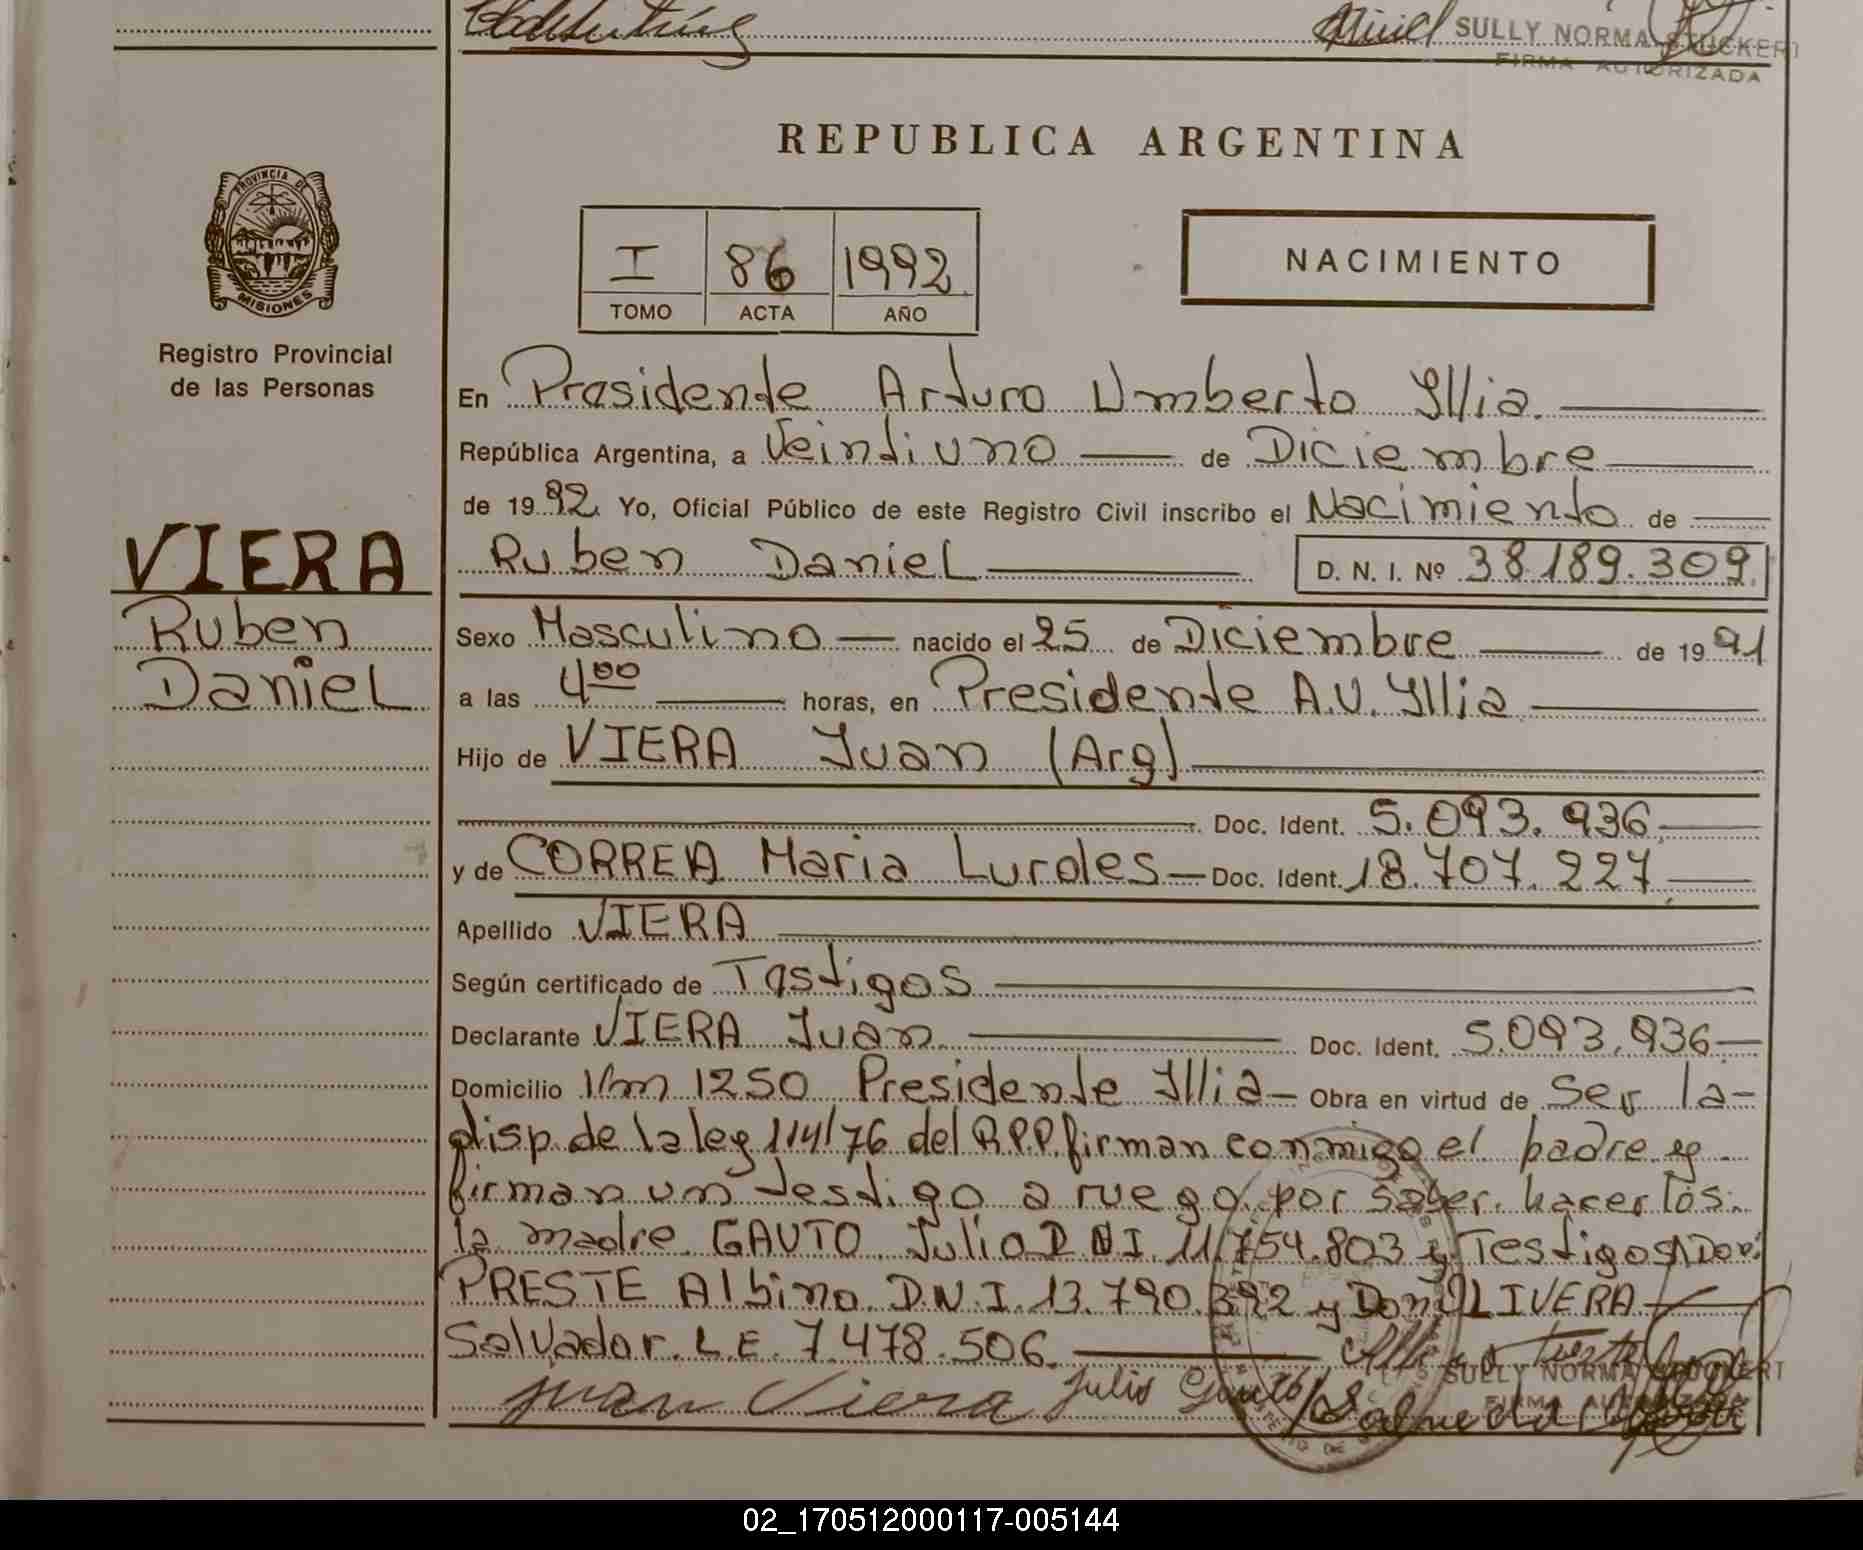 SULLY NORMA STUCKERT
FIRMA AUTORIZADA
REPUBLICA ARGENTINA
PROVINCIA DE
MISIONES
Registro Provincial
de las Personas
I 86 1992
TOMO ACTA AÑO
NACIMIENTO
En Presidente Arturo Umberto Yllia.
República Argentina, a Veintiuno de Diciembre
de 19 92 Yo, Oficial Público de este Registro Civil inscribo el Nacimiento de
Ruben Daniel D. N. I. Nº 38.189.309
VIERA
Ruben
Daniel
Sexo Masculino nacido el 25 de Diciembre de 19 91
a las 4⁰⁰ horas, en Presidente A.U. Yllia
Hijo de VIERA Juan (Arg)
Doc. Ident. 5.093.936
y de CORREA Maria Lurdes Doc. Ident. 18.707.227
Apellido VIERA
Según certificado de Testigos
Declarante VIERA Juan Doc. Ident. 5.093.936
Domicilio Km 1250 Presidente Yllia Obra en virtud de Ser la
disp. de la ley 114/76 del R.P.P. firman conmigo el padre y
firman un testigo a ruego por saber hacerlos
la madre GAUTO Julio D N I 11.754.803 y Testigos Don:
PRESTE Albino D.N.I. 13.790.392 y Don OLIVERA
Salvador L.E. 7.478.506
Juan Viera Julio Gauto
SULLY NORMA STUCKERT
FIRMA AUTORIZADA
02_170512000117-005144